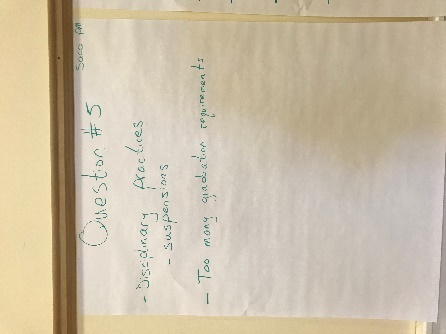 5:00 PM
Question #5
- Discidinary practices
- suspensions
- Too many graduation requirements